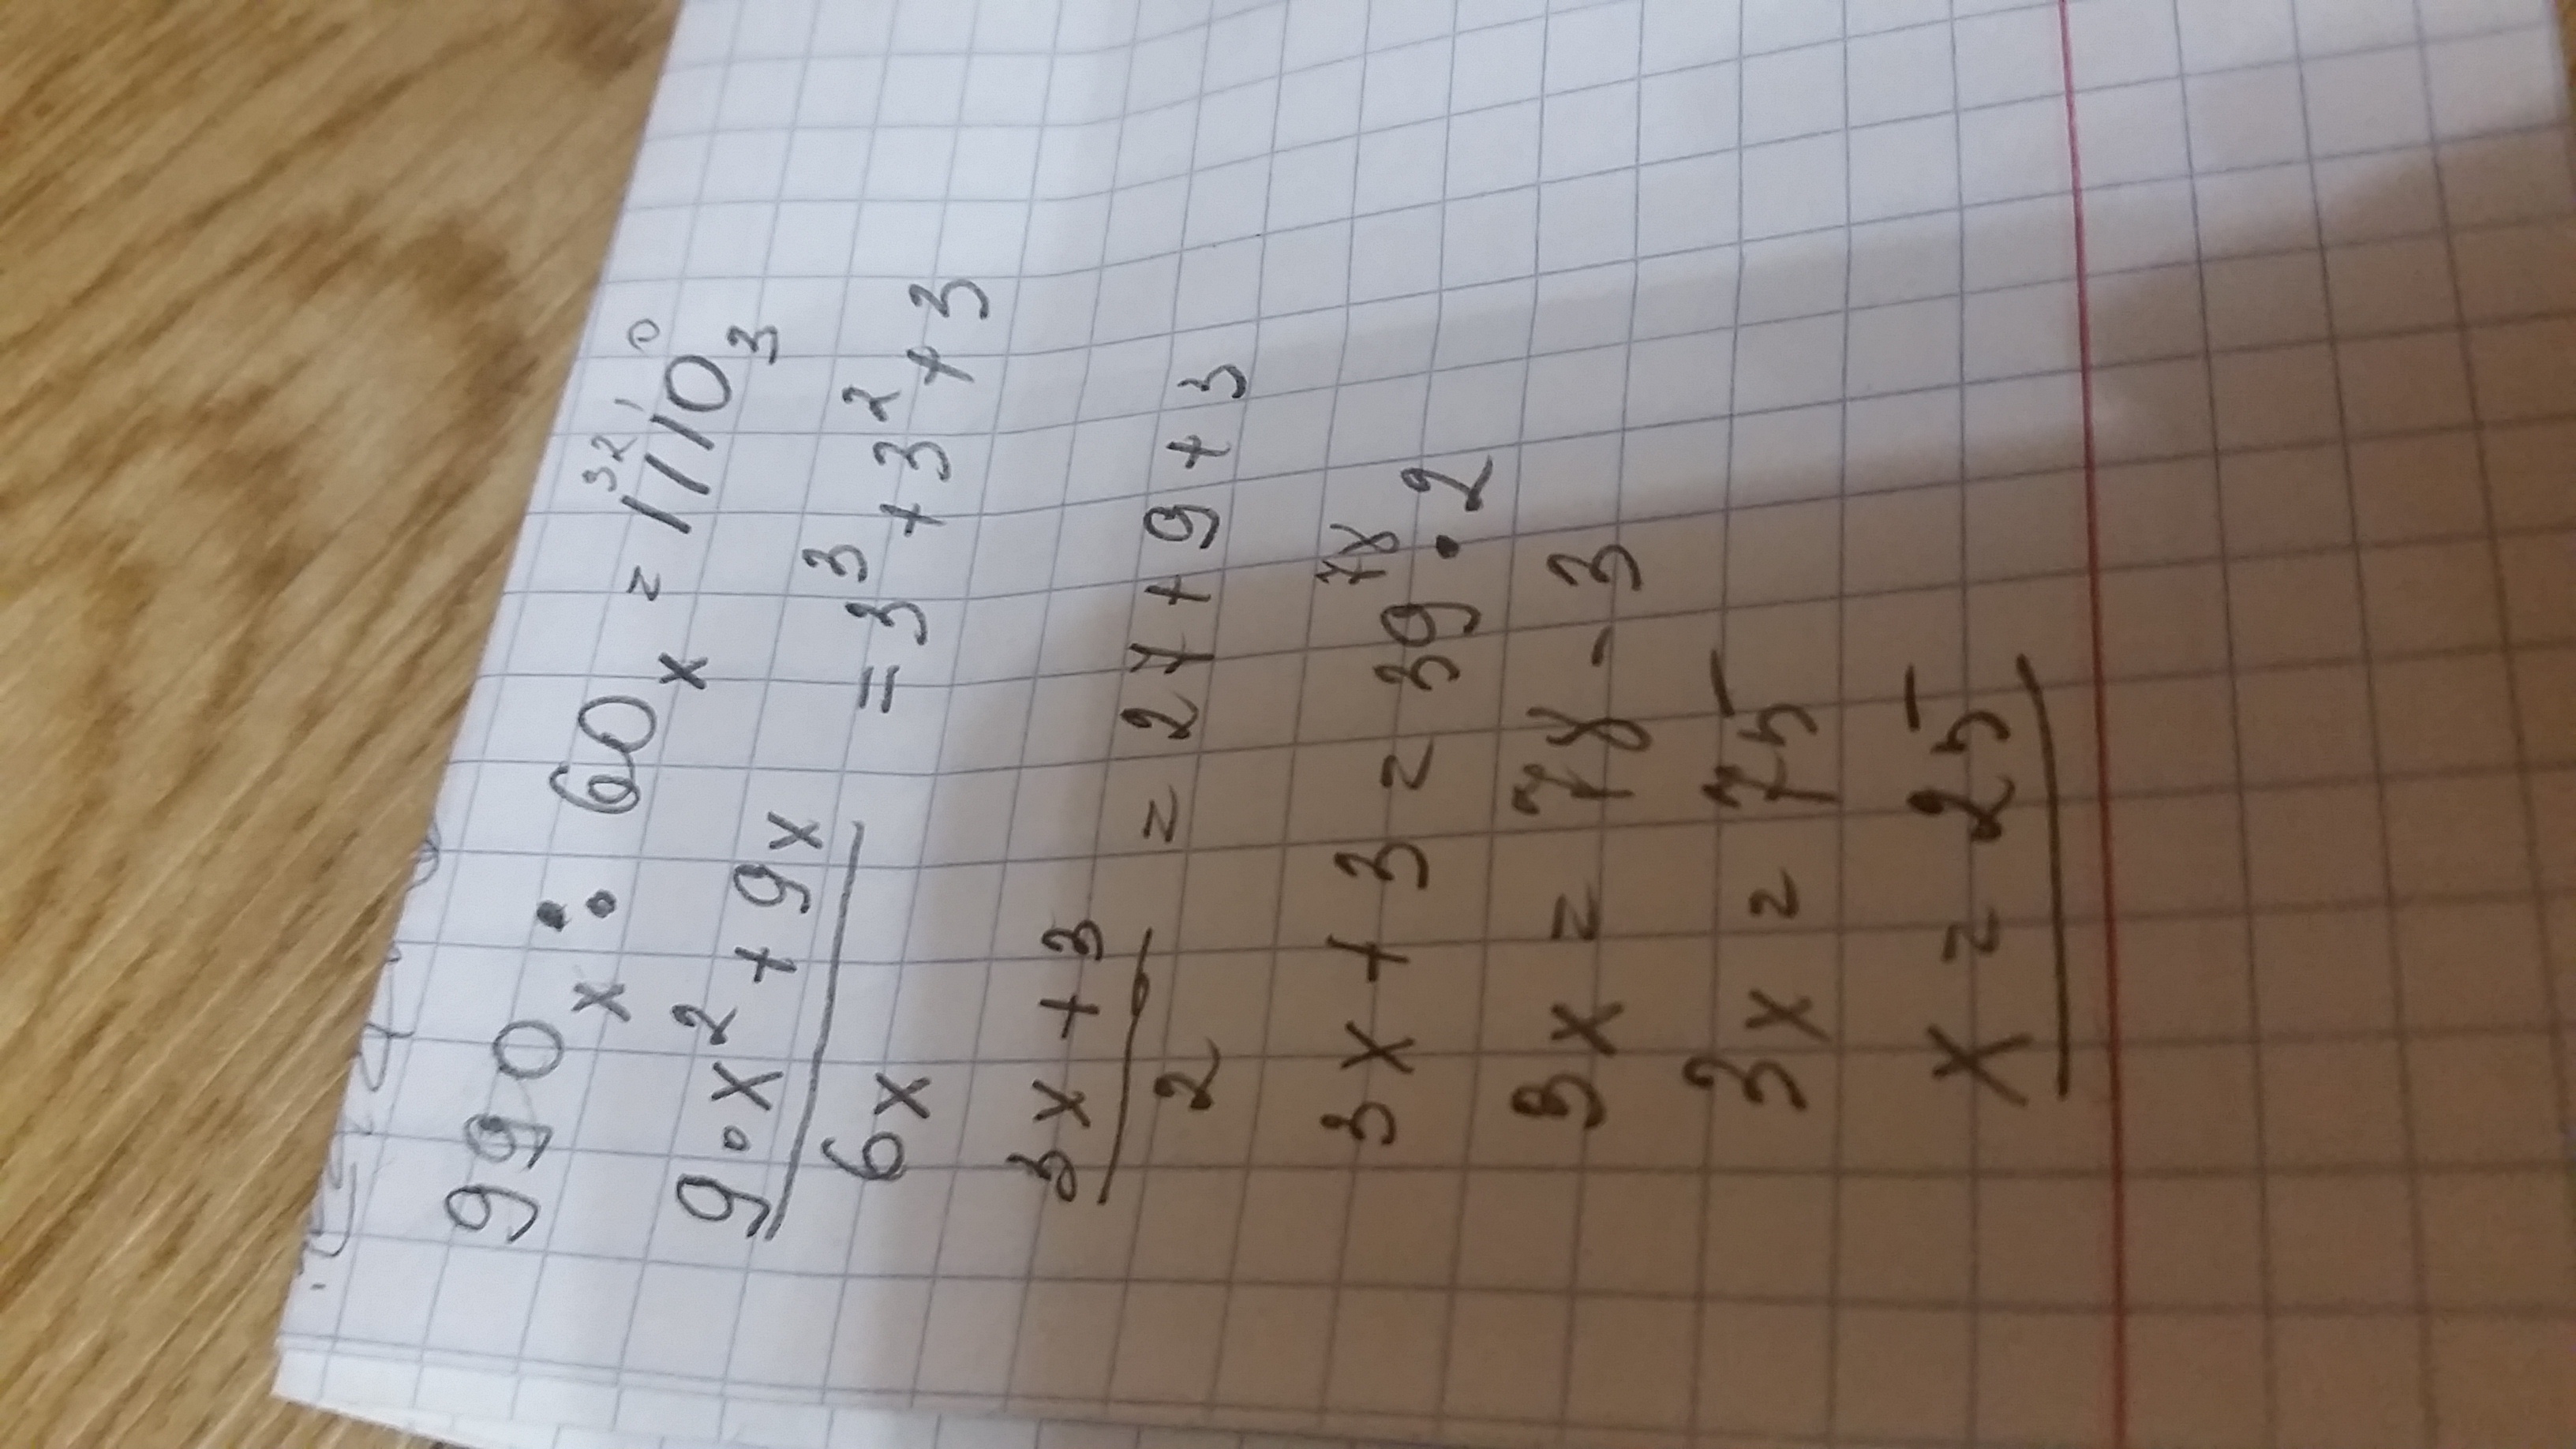 990ₓ : 60ₓ = 1110₃
3 2 1 0
9·x² + 9x / 6x = 3³ + 3² + 3
3x + 3 / 2 = 27 + 9 + 3
78
3x + 3 = 39 · 2
3x = 78 - 3
3x = 75
x = 25